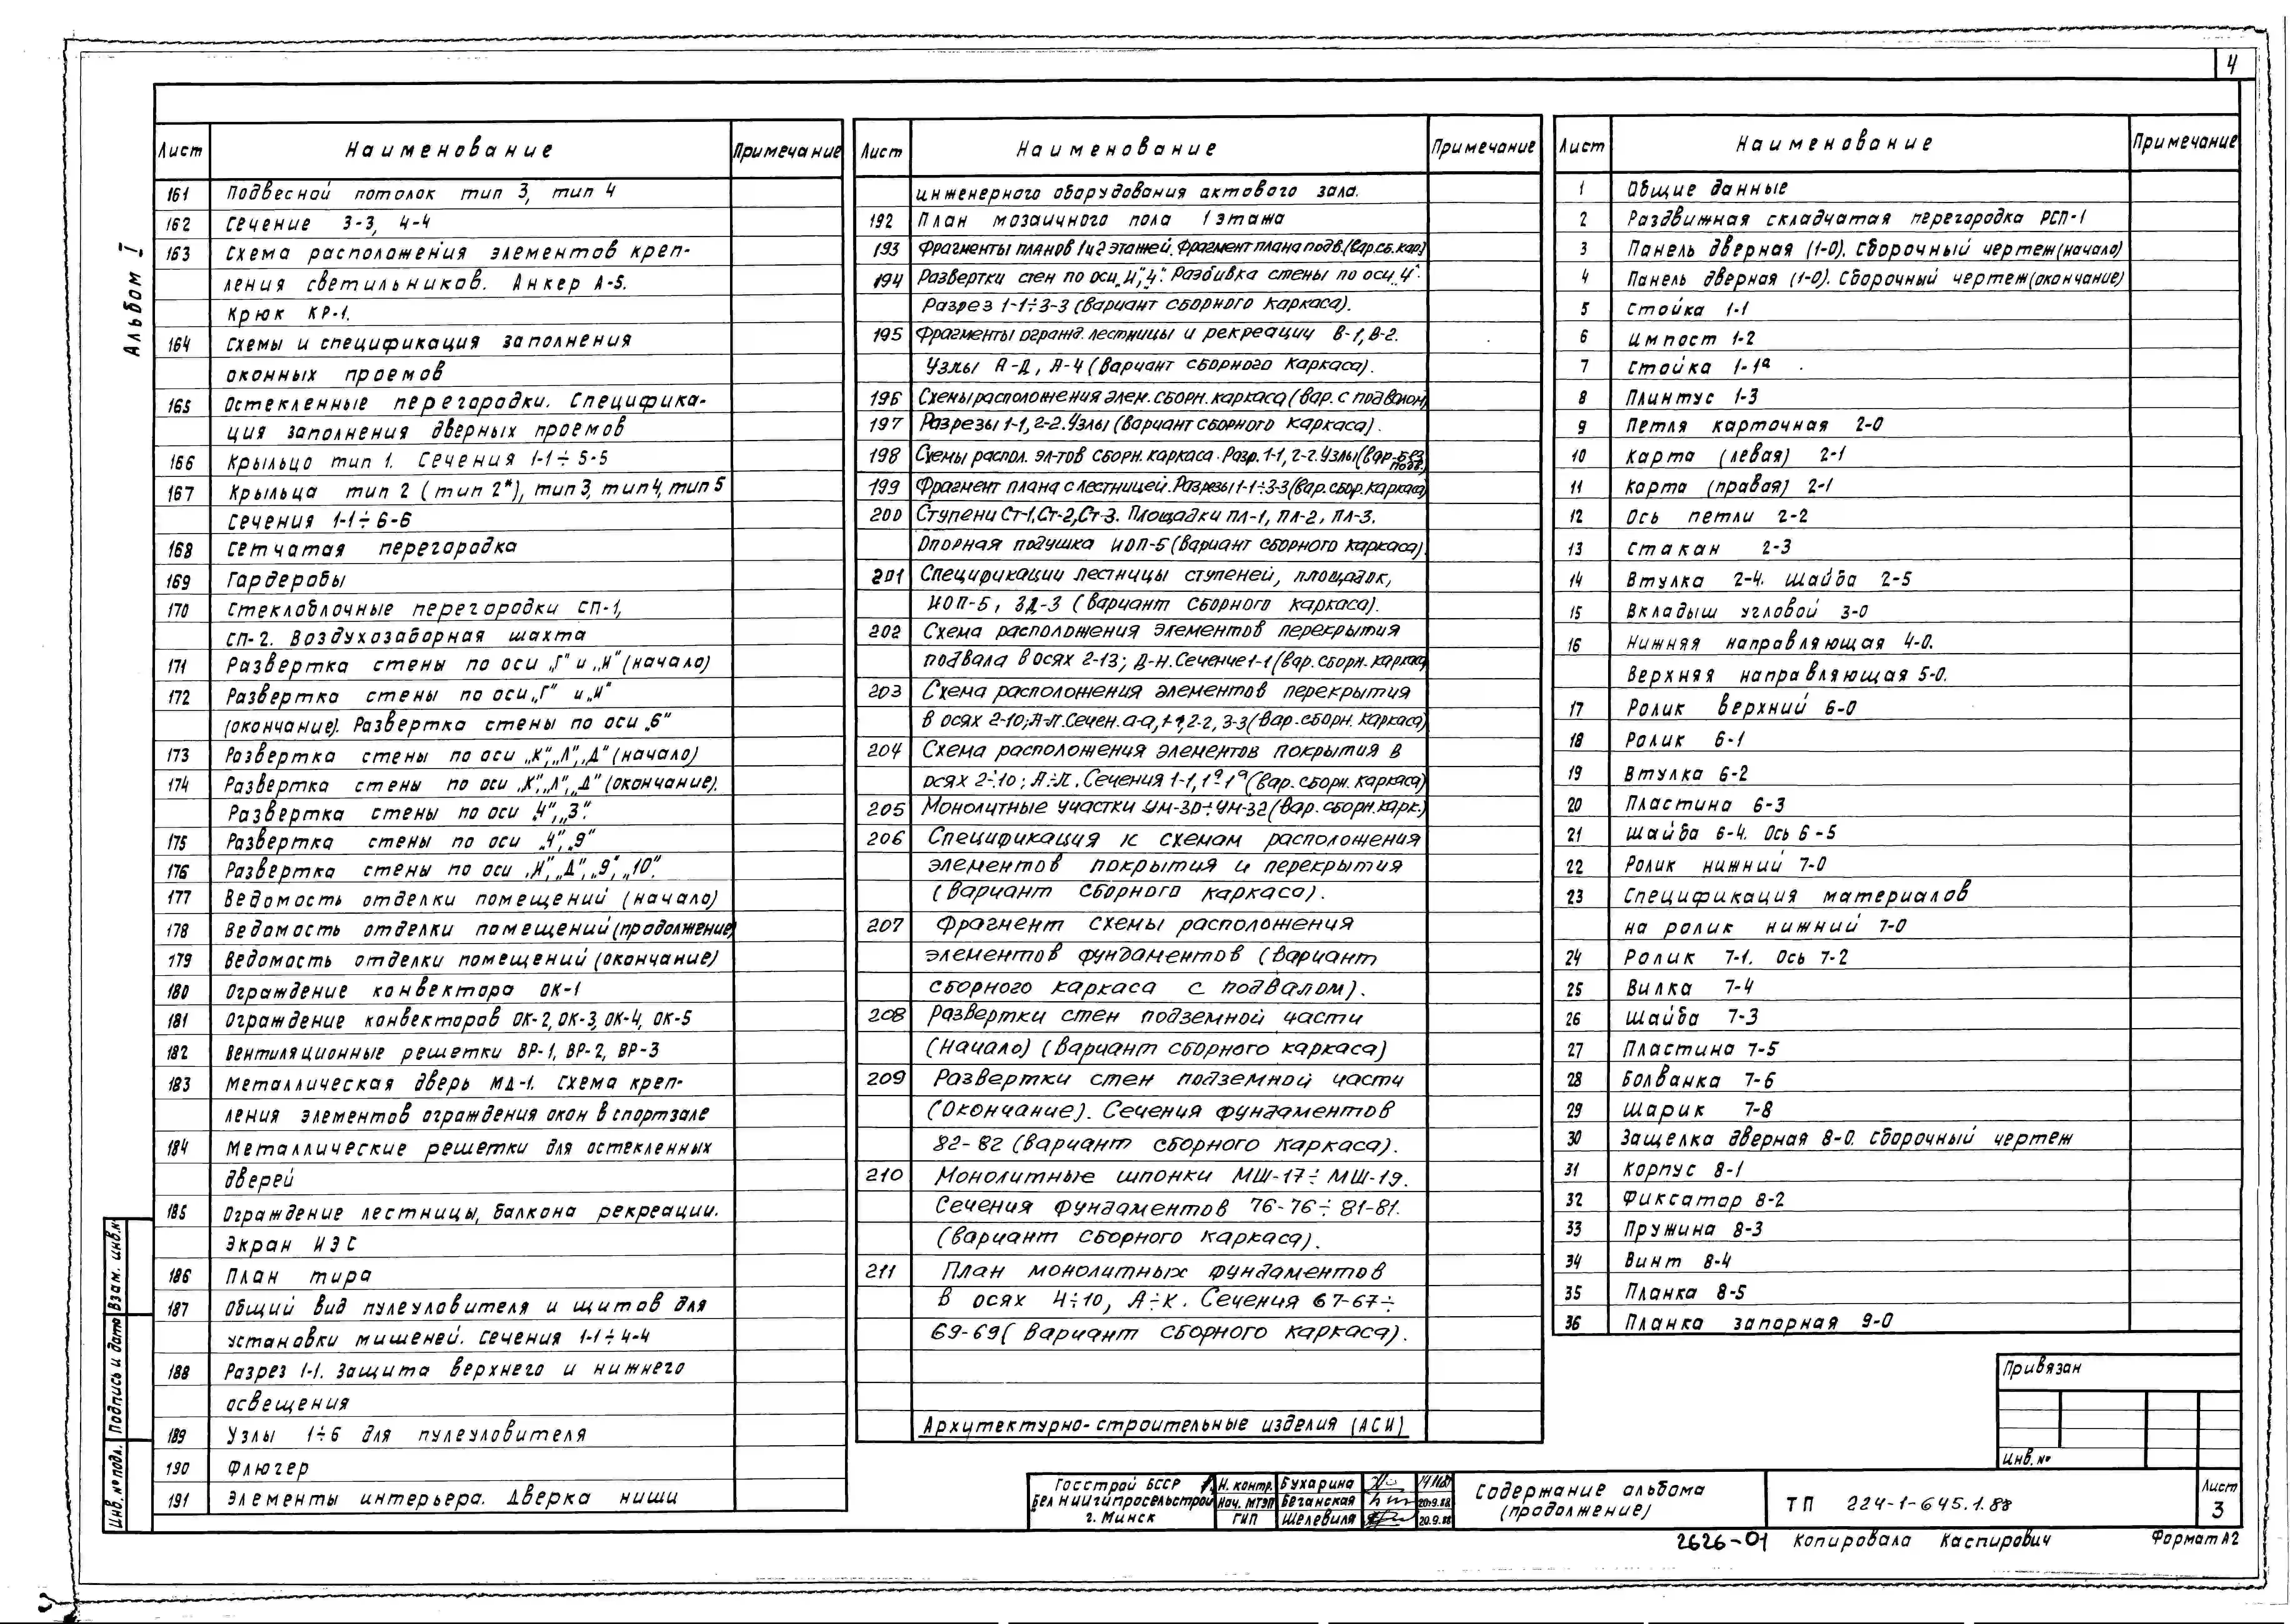 4
Альбом I
Лист Наименование Примечание
161 Подвесной потолок тип 3, тип 4
162 Сечение 3-3, 4-4
163 Схема расположения элементов креп-
ления светильников. Анкер А-5.
Крюк КР-1.
164 Схемы и спецификация заполнения
оконных проемов
165 Остекленные перегородки. Специфика-
ция заполнения дверных проемов
166 Крыльцо тип 1. Сечения 1-1÷5-5
167 Крыльца тип 2 (тип 2*), тип 3, тип 4, тип 5
Сечения 1-1÷6-6
168 Сетчатая перегородка
169 Гардеробы
170 Стеклоблочные перегородки СП-1,
СП-2. Воздухозаборная шахта
171 Развертка стены по оси „Г" и „И" (начало)
172 Развертка стены по оси „Г" и „И"
(окончание). Развертка стены по оси „6"
173 Развертка стены по оси „К", „Л", „Д" (начало)
174 Развертка стены по оси „К", „Л", „Д" (окончание).
Развертка стены по оси „4", „3".
175 Развертка стены по оси „4", „9"
176 Развертка стены по оси „И", „Д", „9", „10".
177 Ведомость отделки помещений (начало)
178 Ведомость отделки помещений (продолжение)
179 Ведомость отделки помещений (окончание)
180 Ограждение конвектора ОК-1
181 Ограждение конвекторов ОК-2, ОК-3, ОК-4, ОК-5
182 Вентиляционные решетки ВР-1, ВР-2, ВР-3
183 Металлическая дверь МД-1. Схема креп-
ления элементов ограждения окон в спортзале
184 Металлические решетки для остекленных
дверей
185 Ограждение лестницы, балкона рекреации.
Экран ИЭС
186 План тира
187 Общий вид пулеуловителя и щитов для
установки мишеней. Сечения 1-1÷4-4
188 Разрез 1-1. Защита верхнего и нижнего
освещения
189 Узлы 1÷6 для пулеуловителя
190 Флюгер
191 Элементы интерьера. Дверка ниши
Лист Наименование Примечание
инженерного оборудования актового зала.
192 План мозаичного пола 1 этажа
193 Фрагменты планов 1 и 2 этажей. Фрагмент плана подв. (вар.сб.кар)
194 Развертки стен по оси „И", „4". Разбивка стены по оси „4".
Разрез 1-1÷3-3 (вариант сборного каркаса).
195 Фрагменты огражд. лестницы и рекреации В-1, В-2.
Узлы А-Д, А-4 (вариант сборного каркаса).
196 Схемы расположения элем. сборн. каркаса (вар. с подвалом)
197 Разрезы 1-1, 2-2. Узлы (вариант сборного каркаса).
198 Схемы распол. эл-тов сборн. каркаса. Разр. 1-1, 2-2. Узлы (вар. без подв.)
199 Фрагмент плана с лестницей. Разрезы 1-1÷3-3 (вар. сбор. каркаса)
200 Ступени Ст-1, Ст-2, Ст-3. Площадки ПЛ-1, ПЛ-2, ПЛ-3.
Опорная подушка ИОП-5 (вариант сборного каркаса)
201 Спецификации лестницы ступеней, площадок,
ИОП-5, ЗД-3 (вариант сборного каркаса).
202 Схема расположения элементов перекрытия
подвала в осях 2-13; Д-Н. Сечение 1-1 (вар. сборн. каркаса
203 Схема расположения элементов перекрытия
в осях 2-10; А-Л. Сечен. а-а, 1-1, 2-2, 3-3 (вар. сборн. каркаса)
204 Схема расположения элементов покрытия в
осях 2÷10; А÷Л. Сечения 1-1, 1ª-1ª (вар. сборн. каркаса)
205 Монолитные участки УМ-30÷УМ-32 (вар. сборн. карк.)
206 Спецификация к схемам расположения
элементов покрытия и перекрытия
(вариант сборного каркаса).
207 Фрагмент схемы расположения
элементов фундаментов (вариант
сборного каркаса с подвалом).
208 Развертки стен подземной части
(начало) (вариант сборного каркаса)
209 Развертки стен подземной части
(окончание). Сечения фундаментов
82-82 (вариант сборного каркаса).
210 Монолитные шпонки МШ-17÷МШ-19.
Сечения фундаментов 76-76÷81-81.
(вариант сборного каркаса).
211 План монолитных фундаментов
в осях 4÷10, А÷К. Сечения 67-67÷
69-69 (вариант сборного каркаса).
Архитектурно-строительные изделия (АСИ)
Лист Наименование Примечание
1 Общие данные
2 Раздвижная складчатая перегородка РСП-1
3 Панель дверная (1-0). Сборочный чертеж (начало)
4 Панель дверная (1-0). Сборочный чертеж (окончание)
5 Стойка 1-1
6 Импост 1-2
7 Стойка 1-1ª
8 Плинтус 1-3
9 Петля карточная 2-0
10 Карта (левая) 2-1
11 Карта (правая) 2-1
12 Ось петли 2-2
13 Стакан 2-3
14 Втулка 2-4. Шайба 2-5
15 Вкладыш угловой 3-0
16 Нижняя направляющая 4-0.
Верхняя направляющая 5-0.
17 Ролик верхний 6-0
18 Ролик 6-1
19 Втулка 6-2
20 Пластина 6-3
21 Шайба 6-4. Ось 6-5
22 Ролик нижний 7-0
23 Спецификация материалов
на ролик нижний 7-0
24 Ролик 7-1. Ось 7-2
25 Вилка 7-4
26 Шайба 7-3
27 Пластина 7-5
28 Болванка 7-6
29 Шарик 7-8
30 Защелка дверная 8-0. Сборочный чертеж
31 Корпус 8-1
32 Фиксатор 8-2
33 Пружина 8-3
34 Винт 8-4
35 Планка 8-5
36 Планка запорная 9-0
Привязан
Инв. №
Взам. инв. №
Подпись и дата
Инв. № подл.
Госстрой БССР
БелНИИгипросельстрой
г. Минск
Н. контр. Бухарина
Нач. МТЭП Беганская 20.9.88
ГИП Шелевиля 20.9.88
Содержание альбома
(продолжение)
ТП 224-1-645.1.88
Лист
3
2626-01 Копировала Каспирович Формат А2